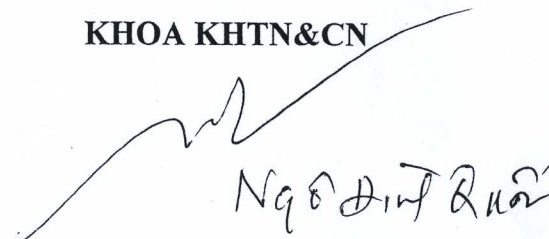 KHOA KHTN&CN
Ngô Đình